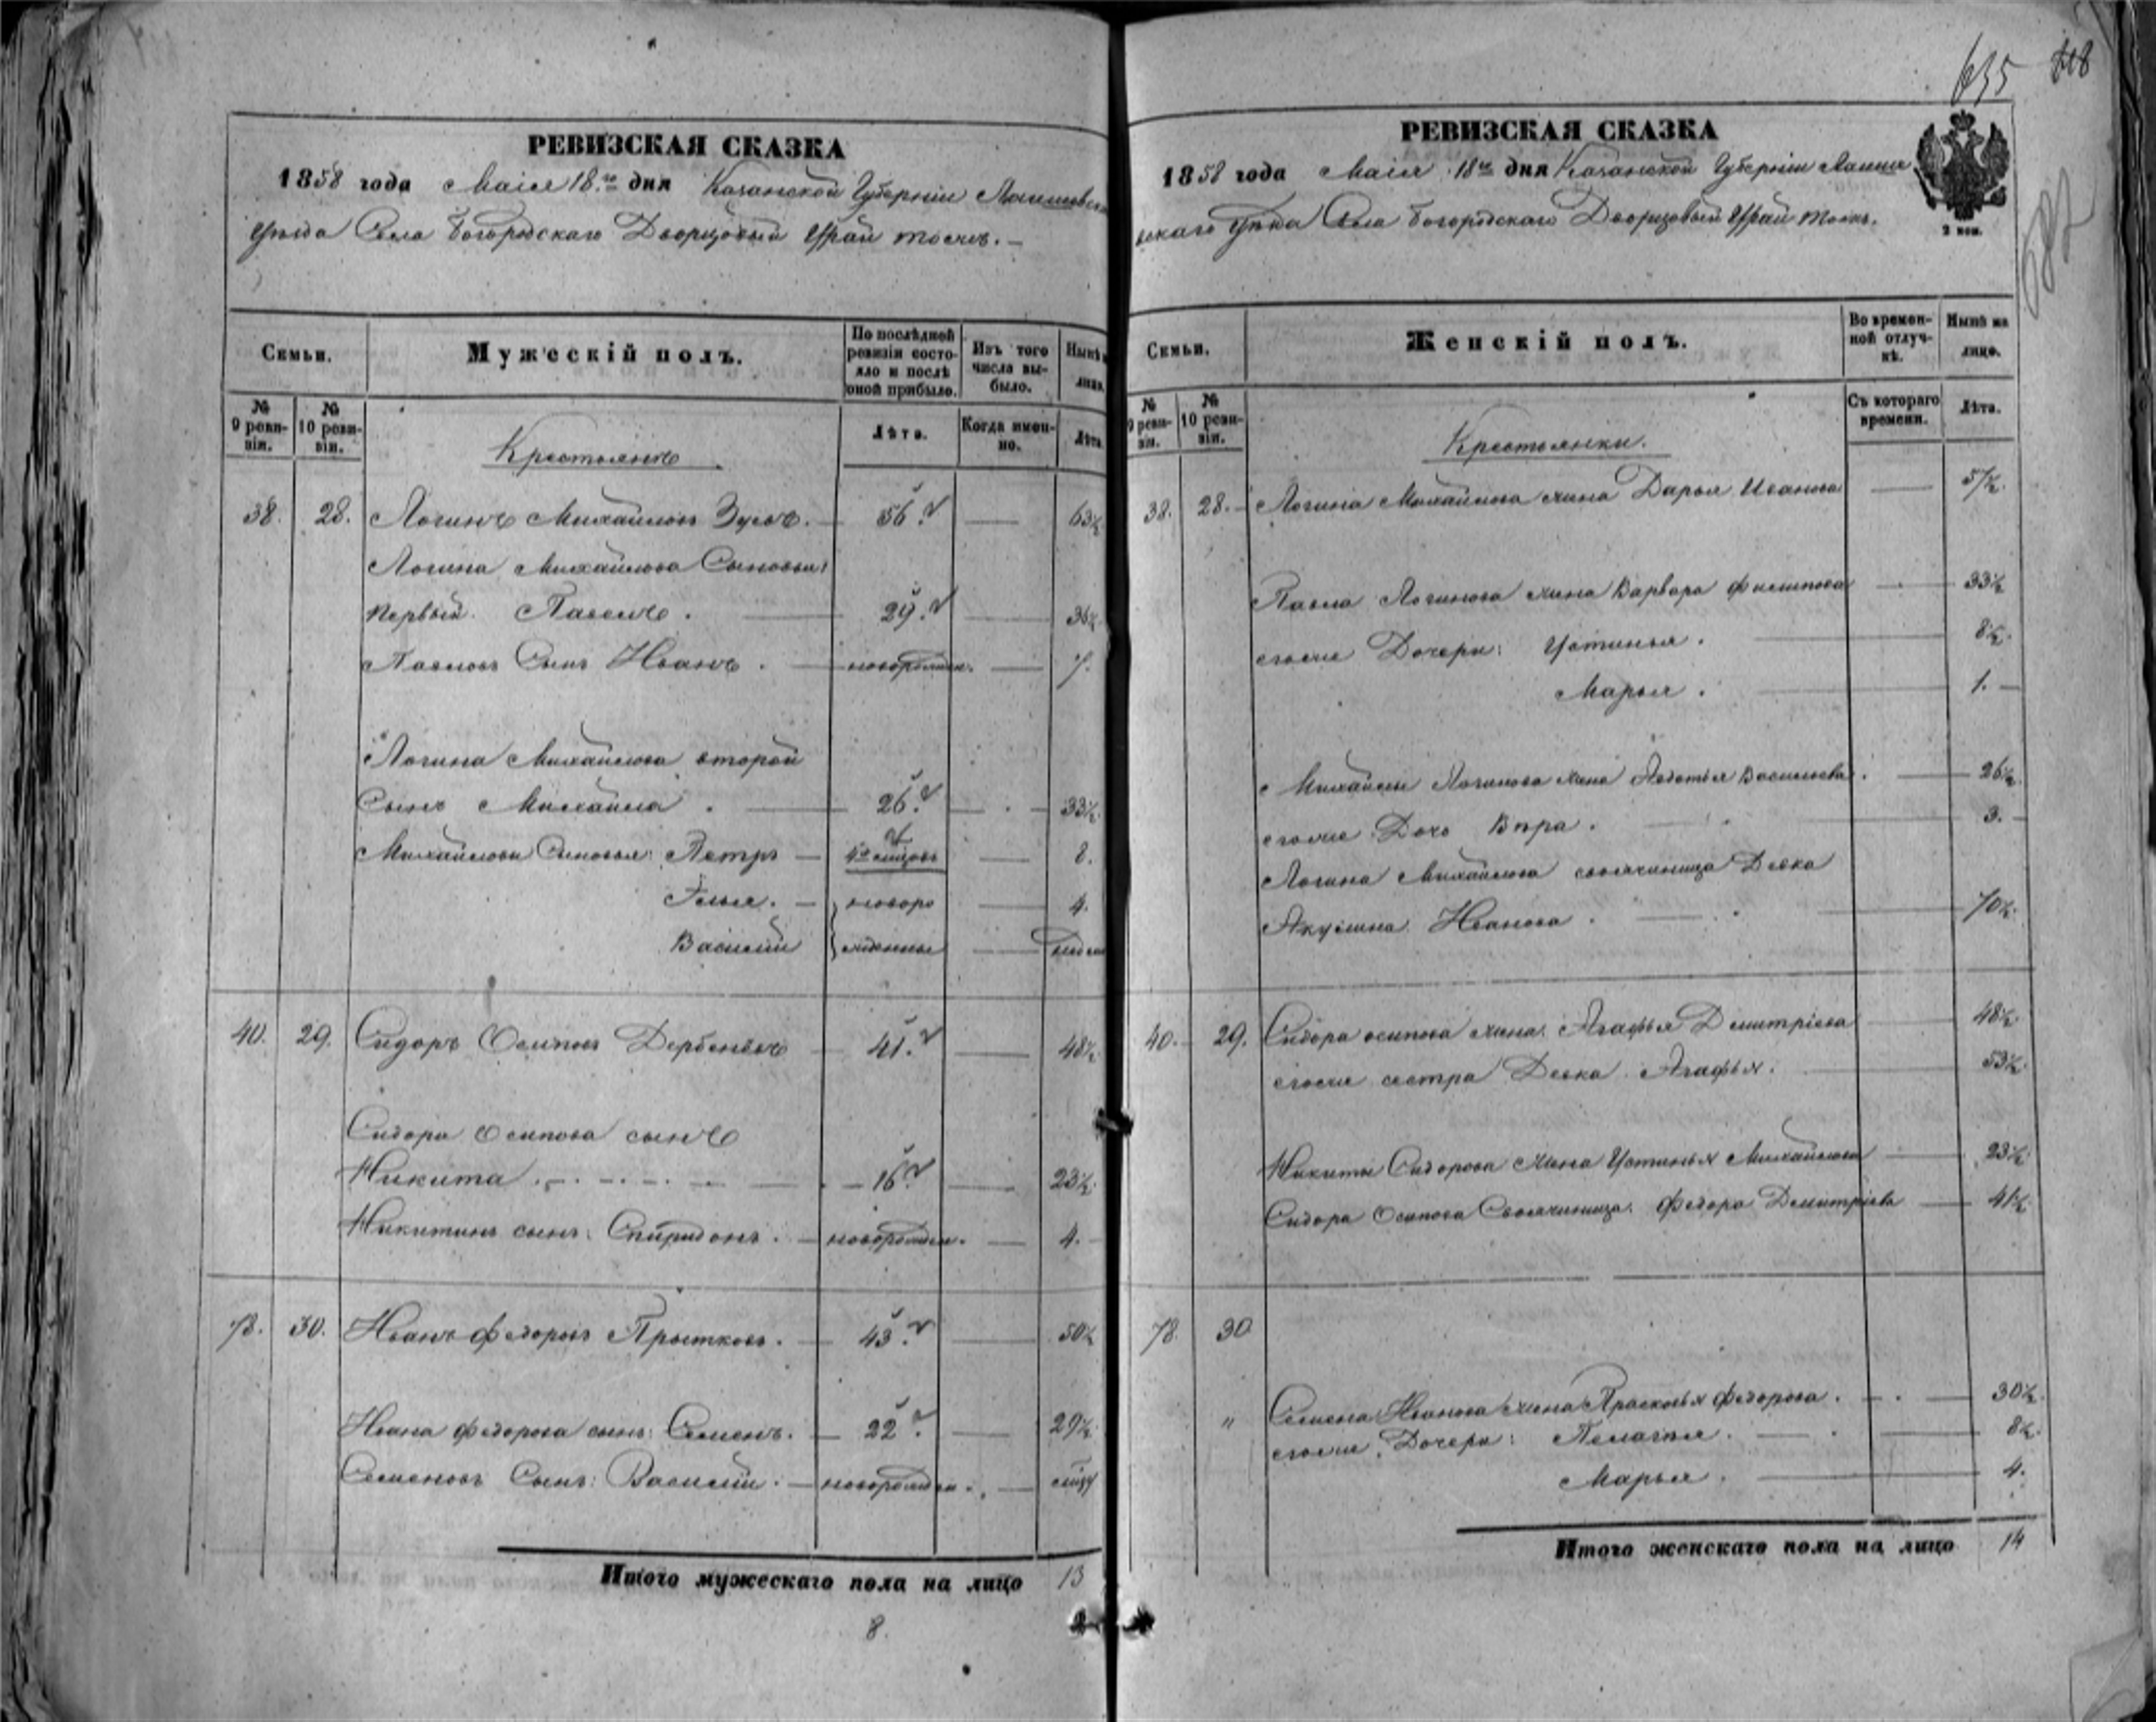 635 418
582
РЕВИЗСКАЯ СКАЗКА
1858 года Маія 18го дня Казанской Губерніи Лаишевск
Уѣзда Села Богородскаго Дворцовый Урай тожъ. –
Семьи.
Мужескій полъ.
По послѣдней ревизіи состояло и послѣ оной прибыло.
Изъ того числа выбыло.
Нынѣ на лицо.
№ 9 ревизіи.
№ 10 ревизіи.
Лѣта.
Когда именно.
Лѣта
Крестьянъ.
38. 28. Логинъ Михайловъ – 56. – 63½
Логина Михайлова Сыновья:
первый Павелъ. – 29. – 36½
Павловъ Сынъ Иванъ. – новорожден. – 7.
Логина Михайлова второй
Сынъ Михайла. – 26. – 33½
Михайловы Сыновья: Петръ – – 8.
Илья. – новоро – 4.
Василій жденные – недел
40. 29. Сидоръ Осиповъ Дербенёвъ – 41. – 48½
Сидора Осипова сынъ
Никита. – 16. – 23½
Никитинъ сынъ: Спиридонъ. – новорожден. – 4.
78. 30. Иванъ Федоровъ Прытковъ. – 43. – 50½
Ивана Федорова сынъ: Семенъ. – 22. – 29½
Семеновъ Сынъ: Василій. – новорожден. –
Итого мужескаго пола на лицо 13
8.
РЕВИЗСКАЯ СКАЗКА
1858 года Маія 18го дня Казанской Губерніи Лаише
вскаго Уѣзда Села Богородскаго Дворцовый Урай тожъ.
2 коп.
Семьи.
Женскій полъ.
Во временной отлучкѣ.
Нынѣ на лицо.
№ 9 ревизіи.
№ 10 ревизіи.
Съ котораго времени.
Лѣта.
Крестьянки.
38. 28. – Логина Михайлова жена Дарья Иванова – 57½.
Павла Логинова жена Варвара Филипова – 33½
егоже Дочери: Устинья. – 8½.
Марья. – 1. –
Михайлы Логинова жена Авдотья Васильева. – 26½.
егоже Дочь Вѣра. – 3. –
Логина Михайлова своячиница Девка
Акулина Иванова. – 70½.
40. – 29. Сидора Осипова жена: Агафья Дмитріева – 48½.
егоже сестра Девка Агафья. – 53½.
Никиты Сидорова жена Устинья Михайлова – 23½.
Сидора Осипова Своячиница: Федора Дмитріева – 41½.
78. 30
" Семена Иванова жена Прасковья Федорова. – 30½.
егоже Дочери: Пелагея. – 8½.
Марья. – 4.
Итого женскаго пола на лицо 14